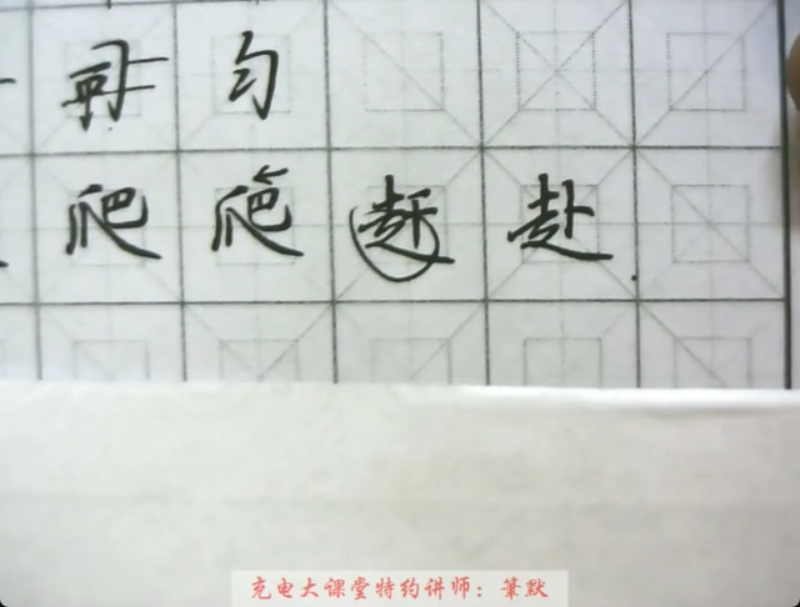 匀
爬 爬 赶 赴
充电大课堂特约讲师：笔默